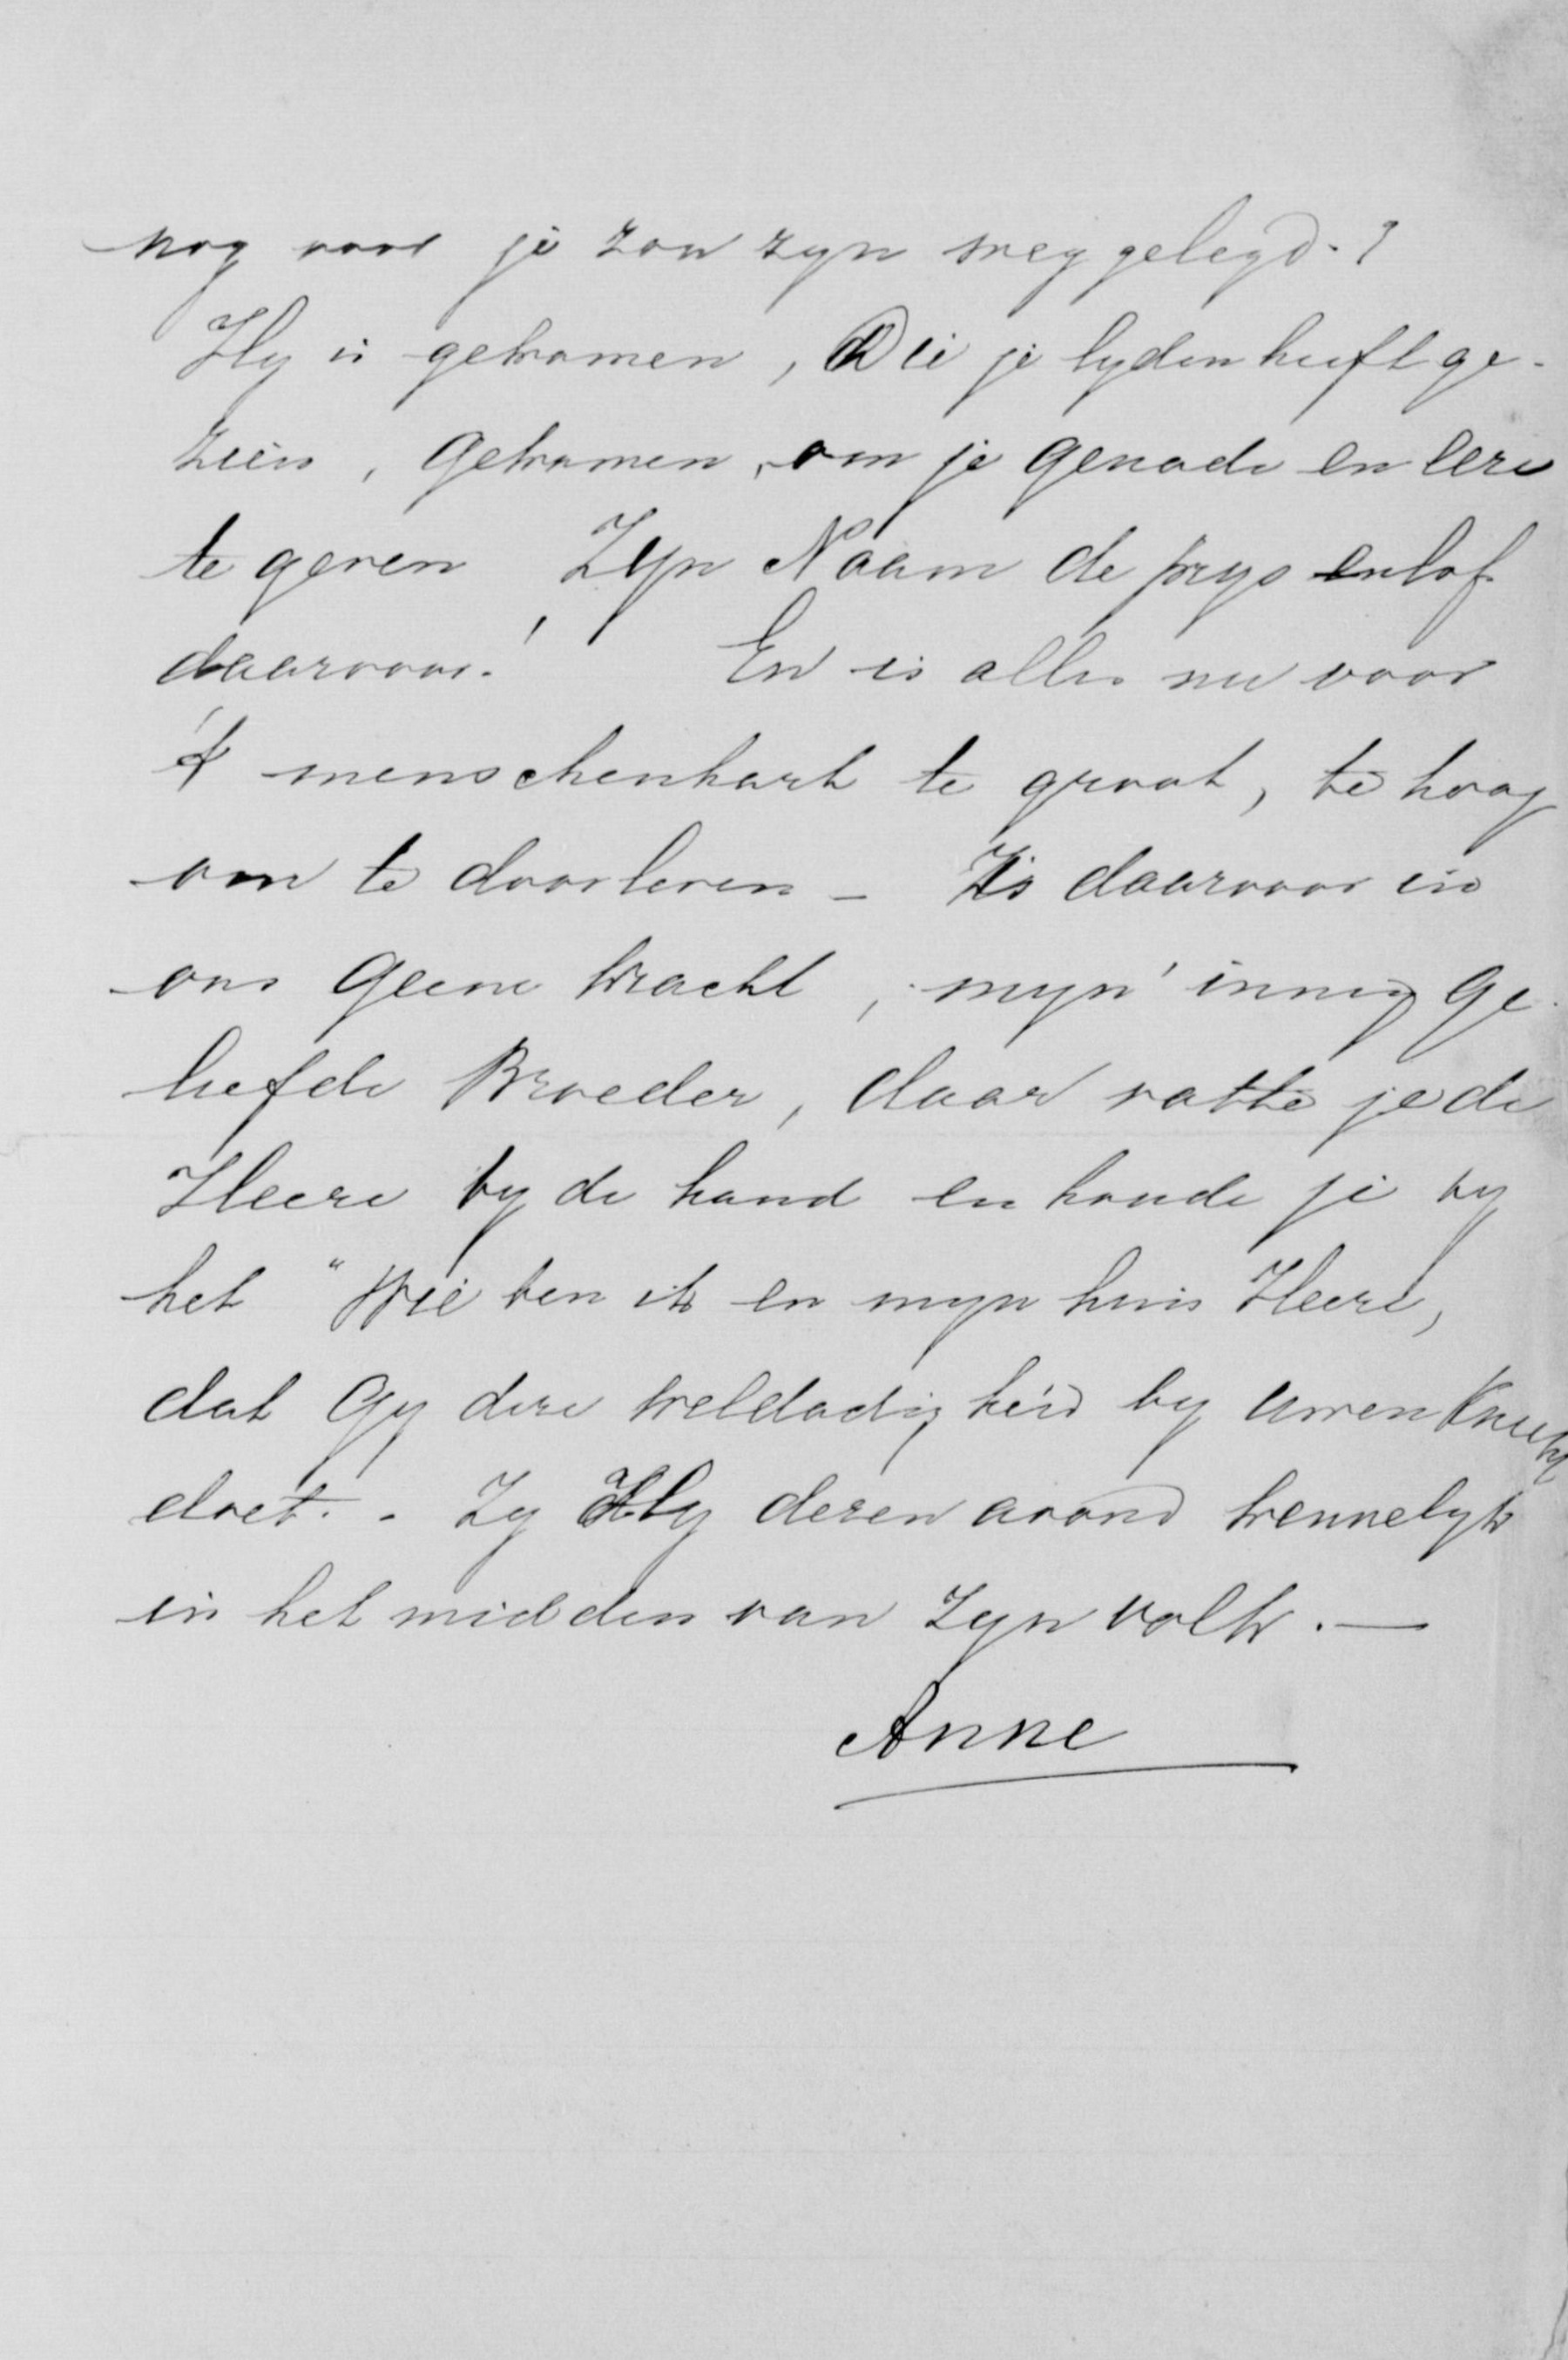 nog voor je zou zyn weggelegd.?
Hy is gekomen, Die je lyden heeft ge-
zien, gekomen, om je genade en eere
te geven Zyn Naam de prys en lof
daarvoor.! En is alles nu voor
't menschenhart te groot, te hoog
om te doorleven - Is daarvoor in
ons geene kracht, myn innig ge-
liefde Broeder, daar vatte je de
Heere by de hand en houde je by
het "Wie ben ik en myn huis Heere,
dat Gy deze weldadigheid by uwen Knecht
doet. - Zy Hy dezen avond kennelyk
in het midden van Zyn volk. —
Anne